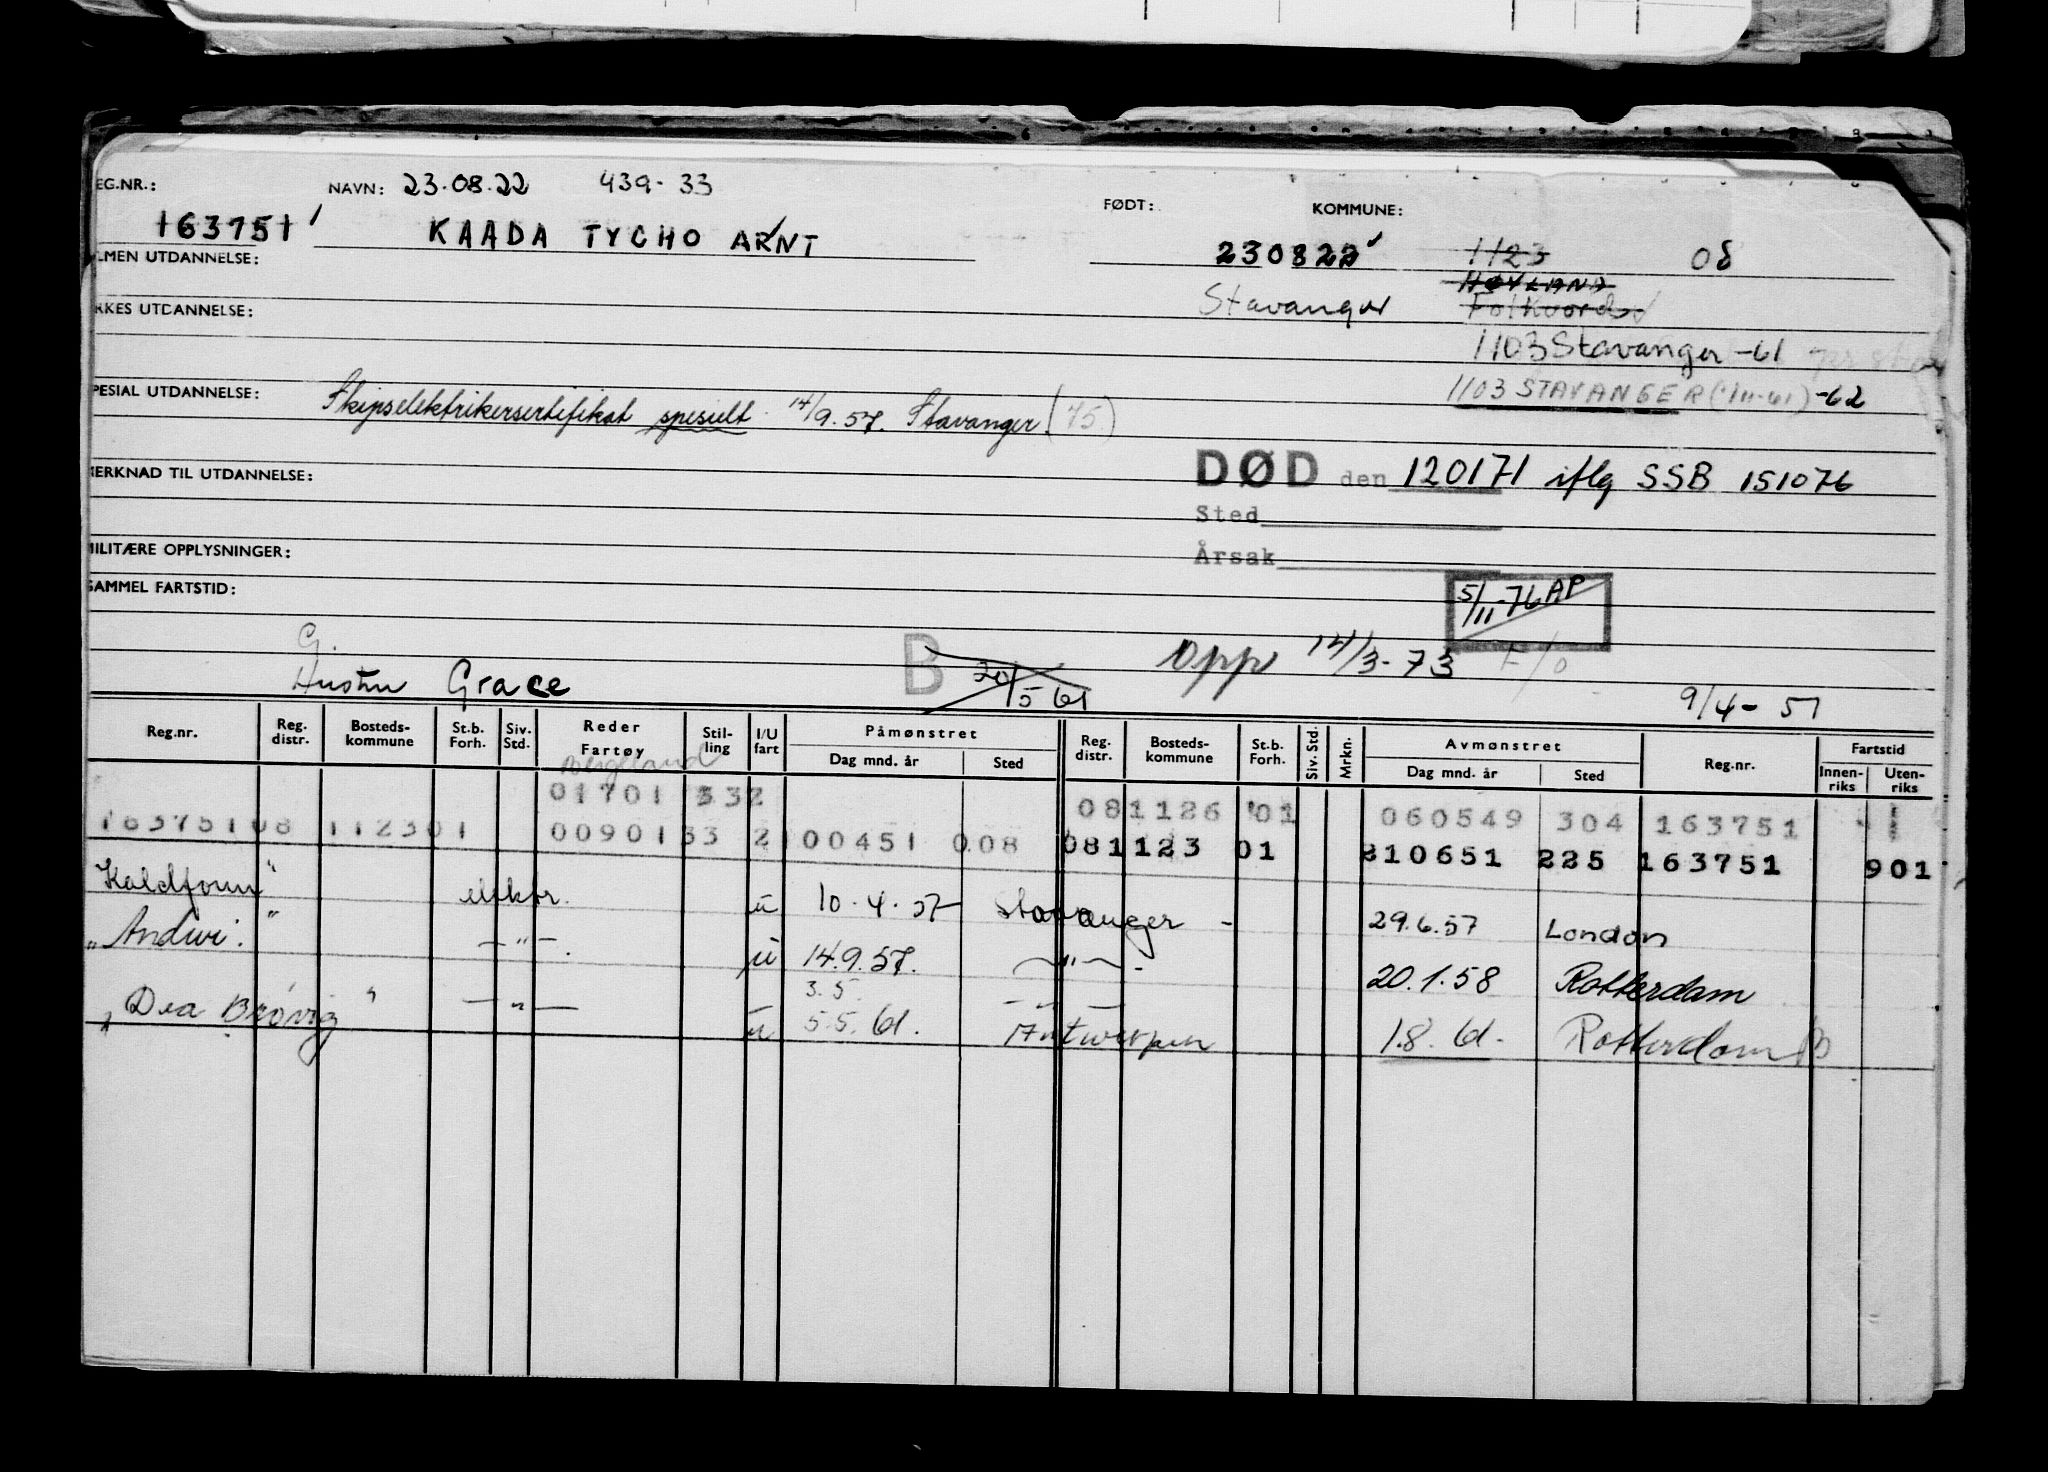 EG.NR.: NAVN: 23.08.22 439-33 FØDT: KOMMUNE:
163751 KAADA TYCHO ARNT 230822 1123 08
LMEN UTDANNELSE: HØYLAND
Stavanger Folkvord
RKES UTDANNELSE:
1103 Stavanger -61
PESIAL UTDANNELSE: Skipselektrikersertifikat spesielt 14/9.57. Stavanger (75.) 1103 STAVANGER (1/11-61) -62
MERKNAD TIL UTDANNELSE: DØD den 120171 iflg SSB 151076
Sted
MILITÆRE OPPLYSNINGER: Årsak
SAMMEL FARTSTID: 5/11-76 AP
G.
Hustru Grace B 20/5 61 Opp 14/3-73 9/4-51
Reg.nr. Reg. distr. Bosteds-kommune St.b. Forh. Siv. Std. Reder Fartøy Stil-ling I/U fart Påmønstret Dag mnd. år Sted Reg. distr. Bosteds-kommune St.b. Forh. Siv. Std. Mrkn. Avmønstret Dag mnd. år Sted Reg.nr. Fartstid Innen-riks Uten-riks
01701 332 081126 01 060549 304 163751
163751 08 1123 01 00901 33 2 100451 008 081123 01 210651 225 163751 901
Kaldfonn" elektr. u 10.4.57 Stavanger - 29.6.57 London
"Andwi." -"- u 14.9.57. -"-. 20.1.58 Rotterdam
3.5. -"-
"Dea Brøvig" -"- u 5.5.61. Antwerpen 1.8.61. Rotterdam